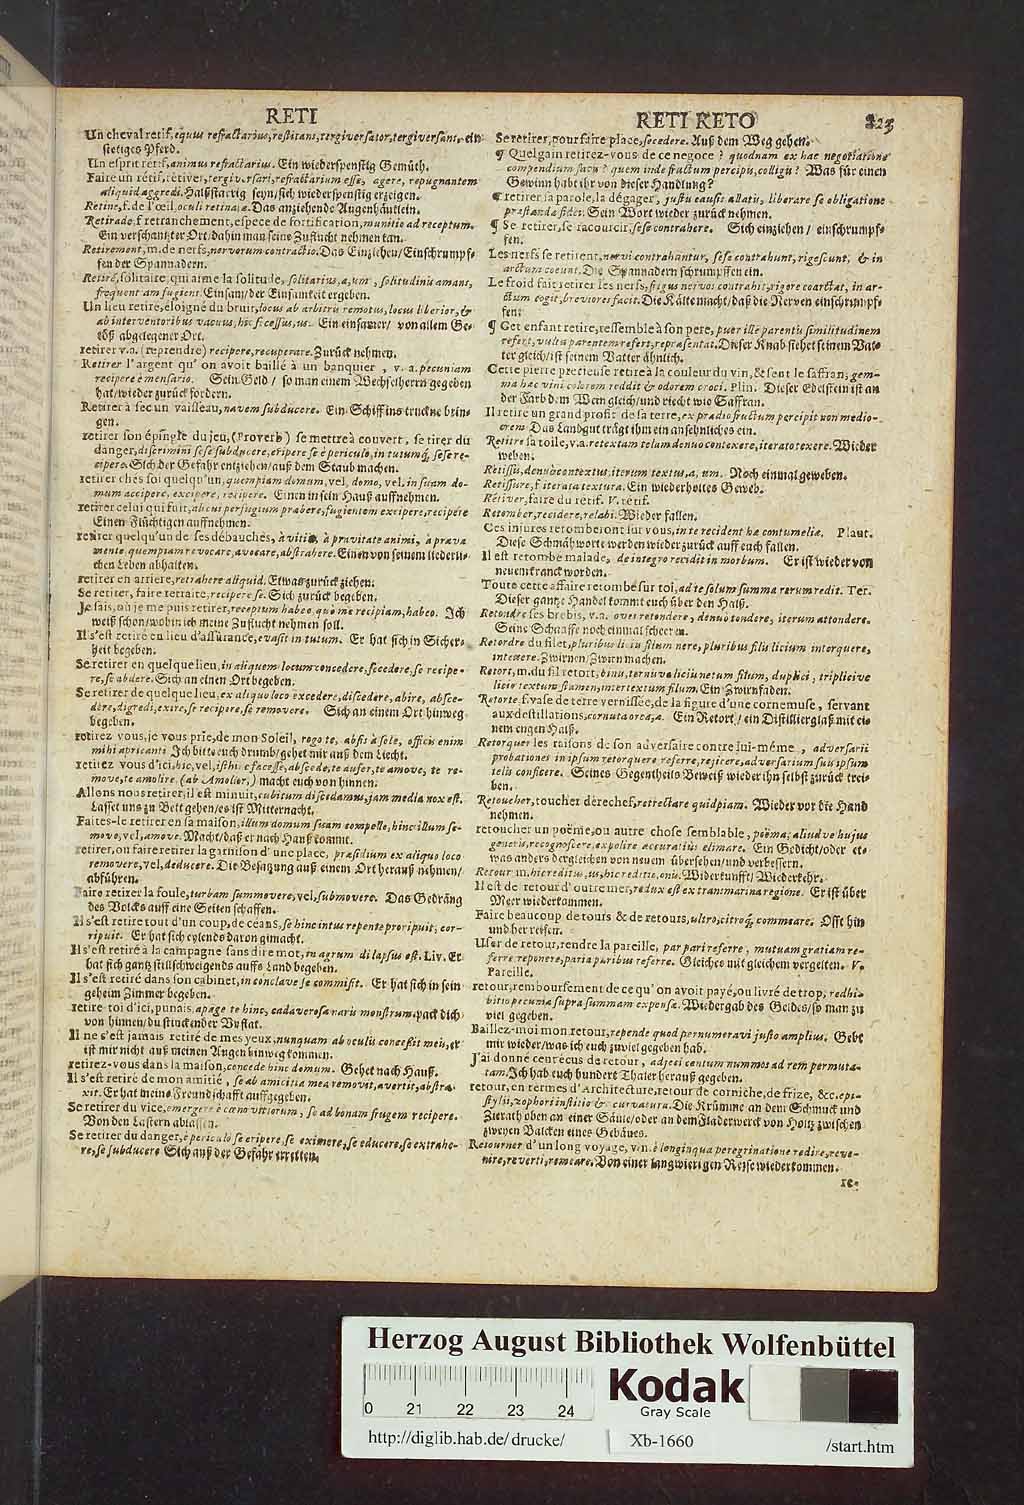 RETI
Un cheval retif, equus refractarius, restitans, tergiversator, tergiversans, ein
stetiges Pferd.
Un esprit retif, animus refractarius. Ein wiederspenstig Gemüth.
Faire un rétif, retiver, tergiversari, refractarium esse, agere, repugnantem
aliquid aggredi. Halßstarrig seyn/sich wiederspenstig erzeigen.
Retine, f. de l'œil, oculi retinala. Das anziehende Augenhäutlein.
Retirade, f. retranchement, espece de fortification, munitio ad receptum.
Ein verschantzter Ort/dahin man seine Zuflucht nehmen kan.
Retirement, m. de nerfs, nervorum contractio. Das Einziehen/Einschrumpf-
fen der Spannadern.
Retiré, solitaire, qui aime la solitude, solitarius, a, um, solitudinis amans,
frequentiam fugiens. Einsam/der Einsamkeit ergeben.
Un lieu retire, eloigné du bruit, locus ab arbitris remotus, locus liberior, &
ab interventoribus vacuus, hic secessus, us. Ein einsamer/ von allem Ge-
töß abgelegener Ort.
retirer v.a. (reprendre) recipere, recuperare. Zurück nehmen.
Retirer l'argent qu' on avoit baillé à un banquier, v. a. pecuniam
recipere è mensario. Sein Geld / so man einem Wechselherrn gegeben
hat/wieder zurück fordern.
Retirer à sec un vaisseau, navem subducere. Ein Schiff ins truckne brin-
gen.
retirer son épingle du jeu, (Proverb) se mettre à couvert, se tirer du
danger, discrimini sese subducere, eripere se è periculo, in tutumq; sese re-
cipere. Sich der Gefahr entziehen/auß dem Staub machen.
retirer chés soi quelqu'un, quempiam domum, vel, domo, vel, in suam do-
mum accipere, excipere, recipere. Einen in sein Hauß auffnehmen.
retirer celui qui fuit, alicui perfugium præbere, fugientem excipere, recipere
Einen Flüchtigen auffnehmen.
retirer quelqu'un de ses débauches, à vitiis, à pravitate animi, à prava
mente quempiam revocare, avocare, abstrahere. Einen von seinen liederli-
chen Leben abhalten.
retirer en arriere, retrahere aliquid. Etwas zurück ziehen.
Se retirer, faire retraite, recipere se. Sich zurück begeben.
Je sais, où je me puis retirer, receptum habeo, quò me recipiam, habeo. Ich
weiß schon/wohin ich meine Zuflucht nehmen soll.
Il s'est retiré en lieu d'assûrance, evasit in tutum. Er hat sich in Sicher-
heit begeben.
Se retirer en quelque lieu, in aliquem locum concedere, secedere, se recipe-
re, se abdere. Sich an einen Ort begeben.
Se retirer de quelque lieu, ex aliquo loco excedere, discedere, abire, absce-
dere, digredi, exire, se recipere, se removere. Sich an einem Ort hinweg
begeben.
retirez vous, je vous prie, de mon Soleil, rogo te, absis à sole, officis enim
mihi apricanti. Ich bitte euch drumb/gehet mir auß dem Liecht.
retirez vous d'ici, hic, vel, isthic facesse, abscede, te aufer, te amove, te re-
move, te amolire. (ab Amolior,) macht euch von hinnen.
Allons nous retirer, il est minuit, cubitum discedamus, jam media nox est.
Lasset uns zu Bett gehen/es ist Mitternacht.
Faites-le retirer en sa maison, illum domum suam compelle, hinc illum se-
movo, vel, amove. Macht/daß er nach Hauß kommt.
retirer, ou faire retirer la garnison d' une place, præsidium ex aliquo loco
removere, vel, deducere. Die Besatzung auß einem Ort herauß nehmen/
abführen.
Faire retirer la foule, turbam summovere, vel, submovere. Das Gedräng
des Volcks auff eine Seiten schaffen.
Il s'est retire tout d'un coup, de ceans, se hinc intus repente proripuit, cor-
ripuit. Er hat sich eylends daron gemacht.
Il s'est retiré à la campagne sans dire mot, in agrum dilapsus est. Liv. Er
hat sich gantz stillschweigends auffs Land begeben.
Il s'est retiré dans son cabinet, in conclave se commisit. Er hat sich in sein
geheim Zimmer begeben.
retire-toi d'ici, punais, apage te hinc, cadaverosa naris monstrum. pack dich
von hinnen/du stinckender Unflat.
Il ne s'est jamais retiré de mes yeux, nunquam ab oculis concessit meis, er
ist mir nicht auß meinen Augen hinweg kommen.
retirez-vous dans la maison, concede hinc domum. Gehet nach Hauß.
Il s'est retiré de mon amitié, se ab amicitia mea removit, avertit, abstra-
xit. Er hat meine Freundschafft auffgegeben.
Se retirer du vice, emergere è cœno vitiorum, se ad bonam frugem recipere.
Von den Lastern ablassen.
Se retirer du danger, è periculo se eripere, se eximere, se educere, se extrahe-
re, se subducere Sich auß der Gefahr erretten.
RETI RETO 323
Se retirer, pour faire place, secedere. Auß dem Weg gehen.
¶ Quel gain retirez-vous de ce negoce? quodnam ex hac negotiatione
compendium facis? quem inde fructum percipis, colligis? Was für einen
Gewinn habt ihr von dieser Handlung?
¶ retirer sa parole, la dégager, justis causis allatis, liberare se obligatione
præstandæ fidei. Sein Wort wieder zurück nehmen.
¶ Se retirer, se racourcir, sese contrahere. Sich einziehen / einschrumpf-
fen.
Les nerfs se retirent, nervi contrahuntur, sese contrahunt, rigescunt, & in
arctum coeunt. Die Spannadern schrumpffen ein.
Le froid fait retirer les nerfs, frigus nervos contrahit, rigore coarctat, in ar-
ctum cogit, breviores facit. Die Kälte macht/daß die Nerven einschrumpf-
fen.
¶ Cet enfant retire, ressemble à son pere, puer ille parentis similitudinem
refert, vultu parentem refert, repræsentat. Dieser Knab siehet seinem Vat-
ter gleich/ist seinem Vatter ähnlich.
Cette pierre precieuse retire à la couleur du vin, & sent le saffran, gem-
ma hæc vini colorem reddit & odorem croci. Plin. Dieser Edelstein ist an
der Farb dem Wein gleich/und riecht wie Saffran.
Il retire un grand profit de sa terre, ex prædio fructum percipit non medio-
crem. Das Landgut trägt ihm ein ansehnliches ein.
Retitre sa toile, v.a. retextam telam denuo contexere, iterato texere. Wieder
weben.
Retissu, denuò contextus, iterum textus, a, um. Noch einmal geweben.
Retissure, f. iterata textura. Ein wiederholtes Geweb.
Rétiver, faire du rétif. V. rétif.
Retomber, recidere, relabi. Wieder fallen.
Ces injures retomberont sur vous, in te recident hæ contumeliæ. Plaut.
Diese Schmähworte werden wieder zurück auff euch fallen.
Il est retombé malade, de integro recidit in morbum. Er ist wieder von
neuem kranck worden.
Toute cette affaire retombe sur toi, ad te solum summa rerum redit. Ter.
Dieser gantze Handel kommt euch über den Halß.
Retondre ses brebis, v.a. oves retondere, denuo tondere, iterum attondere.
Seine Schaaffe noch einmal scheeren.
Retordre du filet, pluribus liciis filum nere, pluribus filis licium intorquere,
intexere. Zwirnen/Zwirn machen.
Retort, m. du fil retort, binis, ternisve liciis netum filum, duplici, triplicive
licio textum stamen, intertextum filum. Ein Zwirnfaden.
Retorte f. vase de terre vernissée, de la figure d'une cornemuse, servant
aux destillations, cornuta orca, æ. Ein Retort/ein Distillierglaß mit ei-
nem engen Halß.
Retorquer les raisons de son adversaire contre lui-même, adversarii
probationes in ipsum retorquere referre, rejicere, adversarium suis ipsum
telis conficere. Seines Gegentheils Beweiß wieder ihn selbst zurück trei-
ben.
Retoucher, toucher derechef, retrectare quidpiam. Wieder vor die Hand
nehmen.
retoucher un poëme, ou autre chose semblable, poëma; aliudve hujus
generis, recognoscere, expolire accuratius elimare. Ein Gedicht/oder et-
was anders dergleichen von neuem übersehen/und verbessern.
Retour m. hic reditus, us, hic reditio, onis. Widerkunfft/Wiederkehr.
Il est de retour d'outremer, redux est ex transmarina regione. Er ist über
Meer wiederkommen.
Faire beaucoup de tours & de retours, ultro, citroq; commeare. Offt hin
und her reisen.
User de retour, rendre la pareille, par pari referre, mutuam gratiam re-
ferre reponere, paria paribus referre. Gleiches mit gleichem vergelten. V.
Pareille.
retour, remboursement de ce qu' on avoit payé, ou livré de trop, redhi-
bitio pecuniæ supra summam expensæ. Wiedergab des Geldes/so man zu
viel gegeben.
Baillez-moi mon retour, repende quod pernumeravi justo amplius. Gebt
mir wieder/was ich euch zuviel gegeben hab.
J'ai donné cent écus de retour, adjeci centum nummos ad rem permuta-
tam. Ich hab euch hundert Thaler herauß gegeben.
retour, en termes d'Architecture, retour de corniche, de frize, &c. epi-
stylii, zophori institio & curvatura. Die Krümme an dem Schmuck und
Zierath oben an einer Säule/oder an dem Fladerwerck von Holtz zwischen
zweyen Balcken eines Gebäues.
Retourner d'un long voyage, v.n. è longinqua peregrinatione redire, reve-
nire, reverti, remeare. Von einer langwierigen Reise wiederkommen.
re-
Herzog August Bibliothek Wolfenbüttel
0 21 22 23 24
Kodak
Gray Scale
http://diglib.hab.de/drucke/ Xb-1660 /start.htm